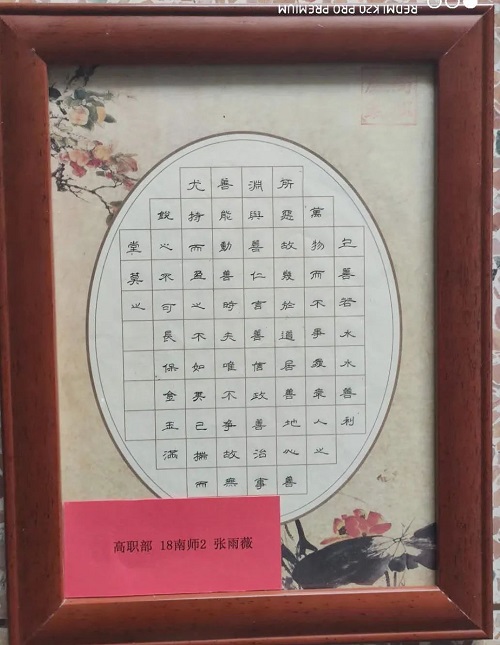 REDMI K20 PRO PREMIUM
上善若水水善利
萬物而不爭處衆人之
所惡故幾於道居善地心善
淵與善仁言善信政善治事
善能動善時夫唯不爭故無
尤持而盈之不如其已揣而
銳之不可長保金玉滿
堂莫之
高职部 18南师2 张雨薇